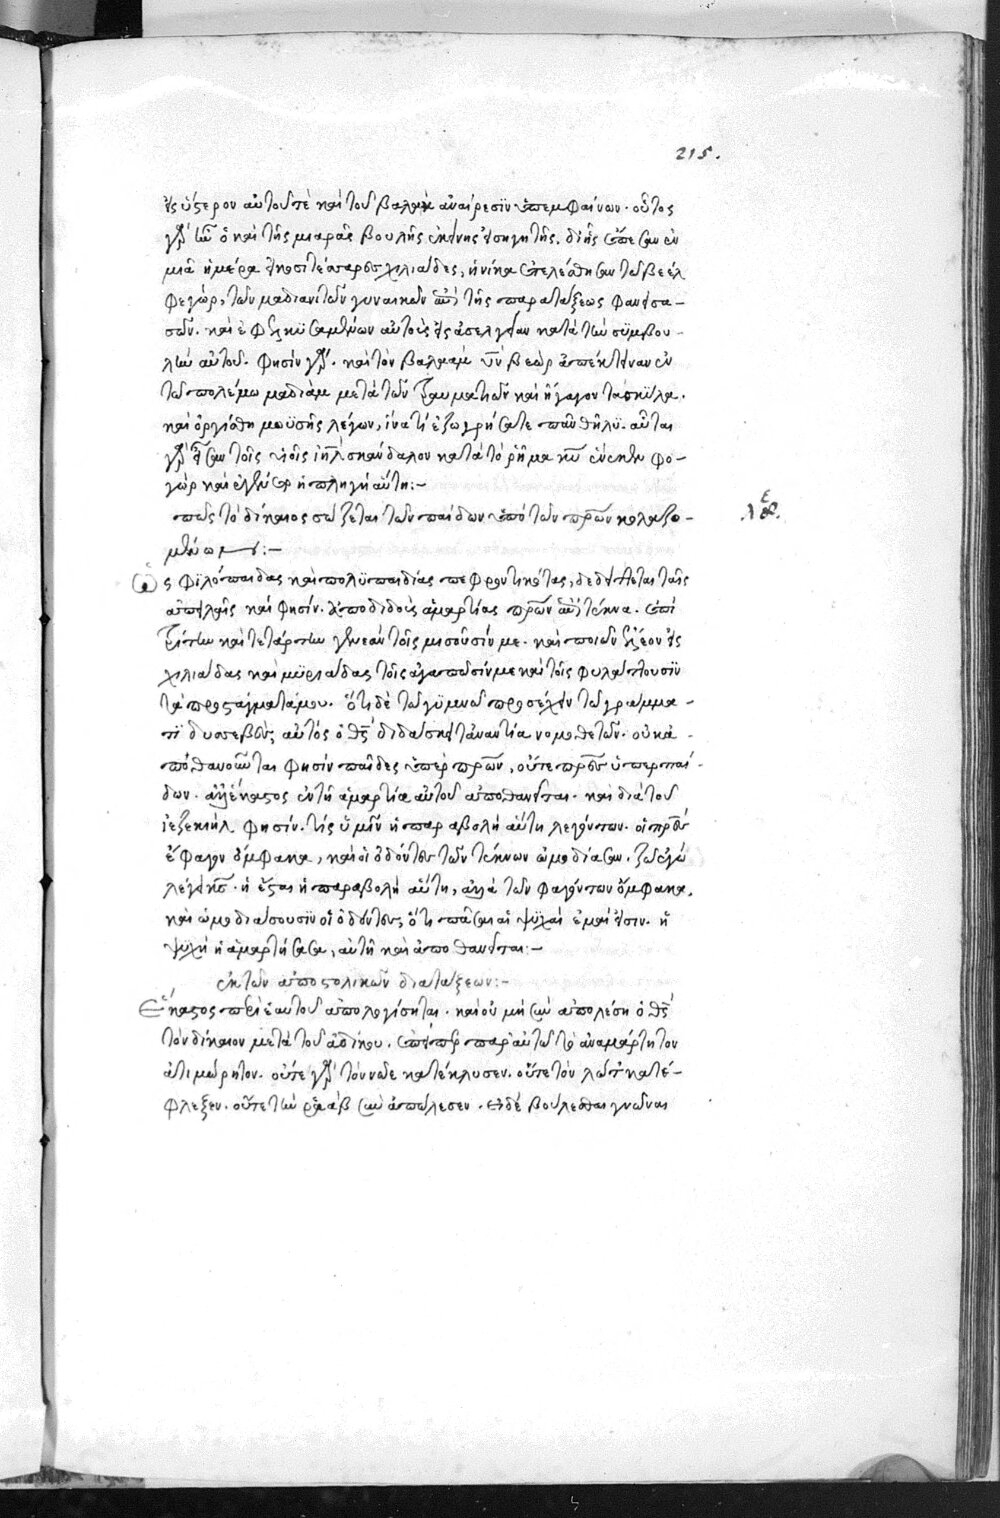 215.
εἰς ὕστερον αὐτοῦ τὲ καὶ τοῦ βαλαὰκ ἀναίρεσϊν ὑπεμφαίνων. οὗτος
γὰρ ἦν ὁ καὶ τῆς μιαρᾶς βουλῆς ἐκείνης εἰσηγητῆς. δι' ἧς ἔπεσαν ἐν
μιᾶ ἡμέρα εἴκοσι τέσσαρες χιλιάδες, ἡνίκα ἐτελέσθησαν τῶ βεὲλ
φεγὼρ, τῶν μαδιανιτῶν γυναικῶν ἀντὶ τῆς παρατάξεως φανεισα-
σῶν. καὶ ἐφελκϋσαμένων αὐτοὺς εἰς ἀσελγείαν κατὰ τὴν σϋμβου-
λὴν αὐτοῦ. φησὶν γὰρ. καὶ τὸν βαλαὰμ υἱὸν βεὼρ ἀπέκτειναν ἐν
τῶ πολέμω μαδιὰμ μετὰ τῶν τραυματιῶν καὶ ἤγαγον τὰ σκϋλα.
καὶ ὀργίσθη μωϋσῆς λέγων, ἱνατί ἐζωγρήσατε πᾶν θῆλϋ. αὗται
γὰρ ἦσαν τοῖς υἱοῖς ιηλ σκάνδαλον κατὰ τὸ ρῆμα κυ ἕνεκεν φο-
γὼρ καὶ ἐγένετο ἡ πληγὴ αὕτη:-
πῶς τὸ δίκαιον σώζεται τῶν παίδων ὑπὸ τῶν πρων κολαζο-
μένων:-
ὡς φϊλόπαιδας καὶ πολϋπαιδίας πεφροντικότας, δεδίττεται ταῖς
ἀπειλαῖς καὶ φησίν. ἀποδιδοὺς ἁμαρτίας πρων ἐπὶ τέκνα. ἐπὶ
τρίτην καὶ τετάρτην γενεὰν τοῖς μισοῦσίν με. καὶ ποιῶν ἔλεον εἰς
χιλιάδας καὶ μϋριάδας τοῖς ἀγαπῶσίν με καὶ τοῖς φυλάττουσϊν
τὰ προστάγματά μου. ὅτι δὲ τῶ γϋμνῶ προσέχειν τῶ γράμμα-
τϊ δυσσεβὲς, αὐτὸς ὁ θς διδάσκει τἀναντία νομοθετῶν. οὐκ ἀ-
ποθανοῦνται φησὶν παῖδες ὑπὲρ πρων, οὔτε πρες ὑπὲρ παί-
δων. ἀλλ' ἕκαστος ἐν τῆ ἁμαρτία αὐτοῦ ἀποθανεῖται. καὶ διὰ τοῦ
ἰεζεκιὴλ φησὶν. τίς ὑμῖν ἡ παραβολὴ αὕτη λεγόντων. οἱ πρες
ἔφαγον ὄμφακα, καὶ οἱ ὀδόντες τῶν τέκνων ὠμωδίασαν. ζῶ ἐγὼ
λέγει κς. ἢ ἔσται ἡ παραβολὴ αὕτη, ἀλλὰ τῶν φαγόντων ὄμφακα,
καὶ ὠμωδιάσουσϊν οἱ ὀδόντες, ὅτι πᾶσαι αἱ ψϋχαὶ ἐμαί εἰσιν. ἡ
ψϋχὴ ἡ ἁμαρτήσασα, αὐτὴ καὶ ἀποθανεῖται:-
ἐκ τῶν ἀποστολικῶν διατάξεων:-
Ἕκαστος περὶ ἑαυτοῦ ἀπολογίσηται. καὶ οὐ μὴ συναπολέση ὁ θς
τὸν δίκαιον μετὰ τοῦ ἀδίκου. ἐπείπερ παρ' αὐτῶ τὸ ἀναμάρτητον
ἀτιμώρητον. οὔτε γὰρ τὸν νῶε κατέκλυσεν. οὔτε τὸν λὼτ κατέ-
φλεξεν. οὔτε τὴν ραὰβ συναπώλεσεν. εἰ δὲ βούλεσθαι γνῶναι